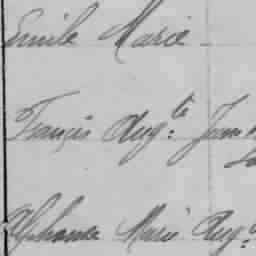 Emile Marie
François Aug.te Jean
Alphonse Marie Aug.